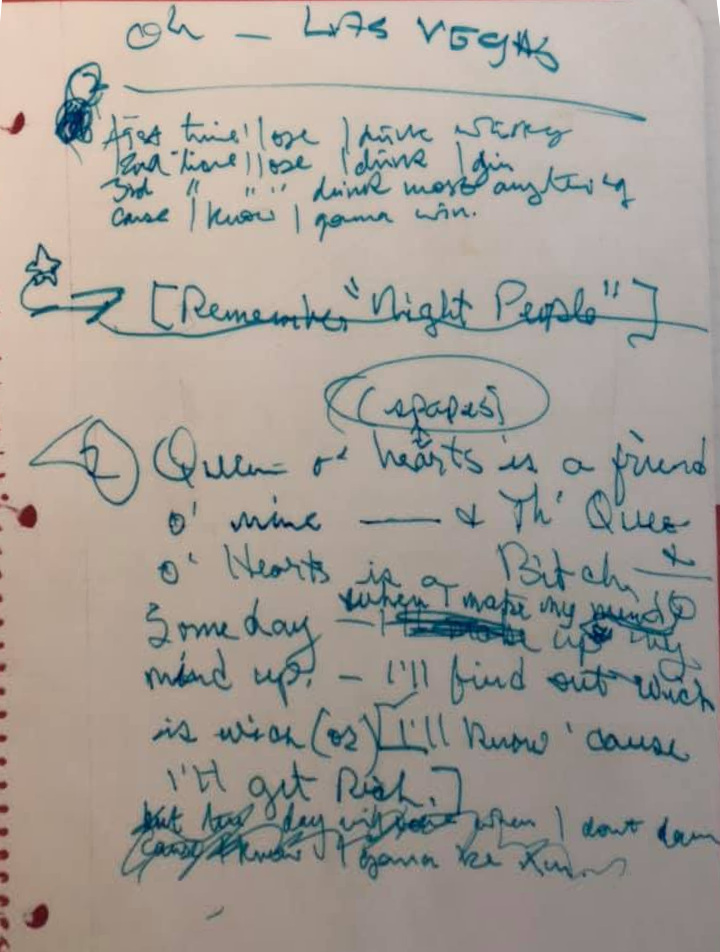 oh - LAS VEGAS
First time I lose I drink Whisky
2nd time I lose I drink Gin
3rd " " " drink most anything
Cause I know I gonna win.
[Remember "Night People"]
(spades)
2 Queen o' hearts is a friend
o' mine — & Th' Quee
o' Hearts is a Bitch, &
Someday — when I make my mind
up my
mind up. - I'll find out wich
is wich (or) [I'll know 'cause
I'll get Rich.]
but day when I dont
Cause I know I gonna be